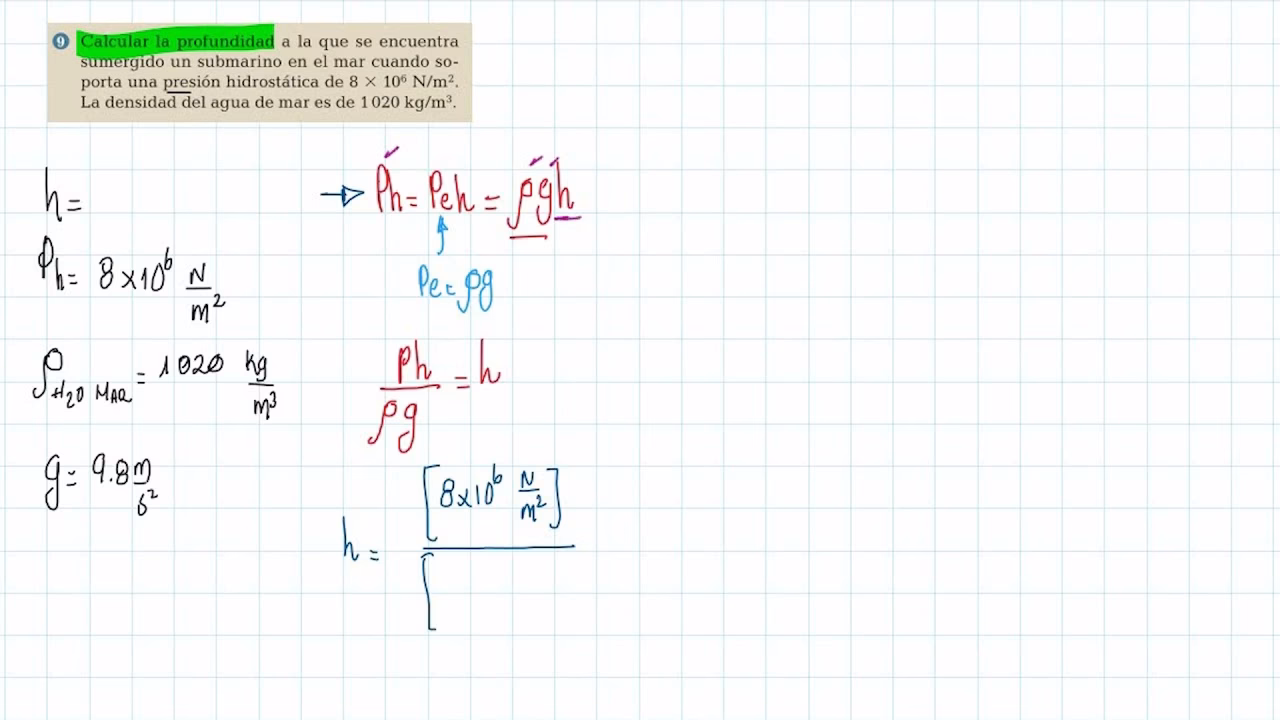 9 Calcular la profundidad a la que se encuentra
sumergido un submarino en el mar cuando so-
porta una presión hidrostática de 8 × 10⁶ N/m².
La densidad del agua de mar es de 1 020 kg/m³.
h =
Ph = 8x10⁶ N/m²
ρH₂O MAR = 1020 kg/m³
g = 9.8 m/s²
Ph = Peh = ρgh
Pe = ρg
Ph/ρg = h
h = [8x10⁶ N/m²]
[